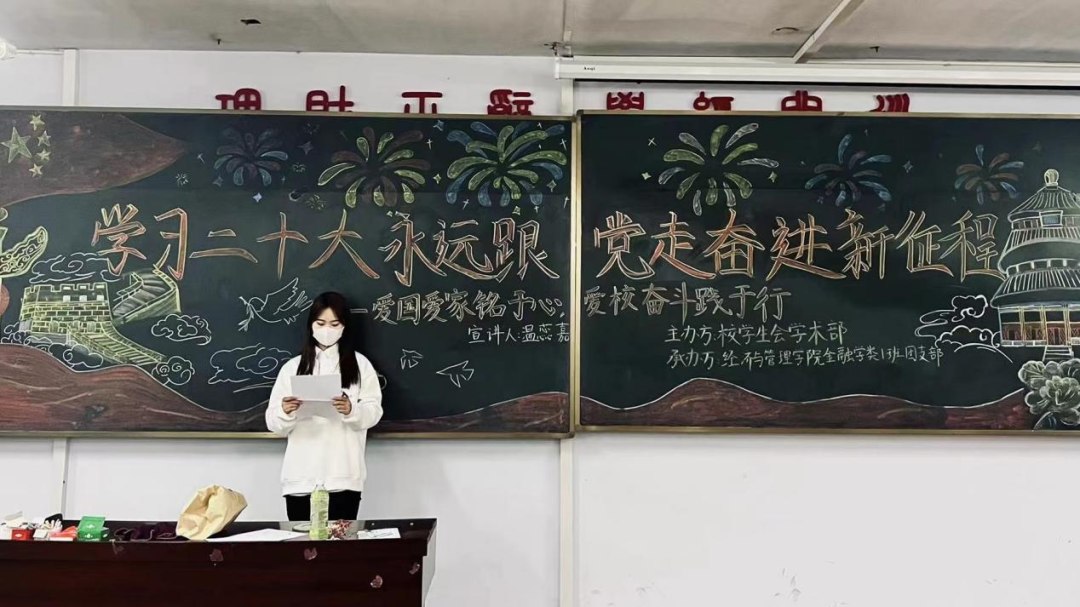 学习二十大 永远跟党走 奋进新征程
—爱国爱家铭于心，爱校奋斗践于行
宣讲人:温恋嘉
主办方:校学生会学术部
承办方:经济与管理学院金融学类1班团支部